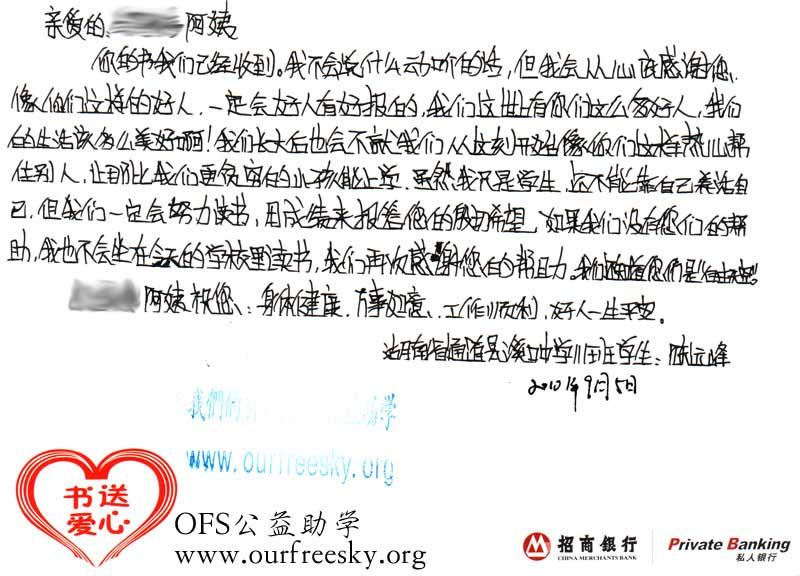 亲爱的 阿姨
你的书我们已经收到。我不会说什么动听的话，但我会从心底感谢您，
像你们这样的好人，一定会好人有好报的，我们这世上有你们这么多好人，我们
的生活该多么美好啊！我们长大后也会不 我们从这刻开始像你们这样热心帮
住别人，让那比我们更贫穷的小孩能上学。虽然我只是学生，还不能靠自己养活自
己，但我们一定会努力读书，用成绩来报答您们的殷切希望，如果我们没有您们的帮
助，我也不会坐在今天的学校里读书，我们再次感谢您们的帮助。我们知道你们是“自由天空”
阿姨祝您：身体健康，万事如意，工作顺利，好人一生平安。
湖南省通道县溪口中学 班学生：陈远峰
2010年9月5日
我們的自 助学
www.ourfreesky.org
书送
爱心
OFS公益助学
www.ourfreesky.org
招商银行 Private Banking
CHINA MERCHANTS BANK 私人银行